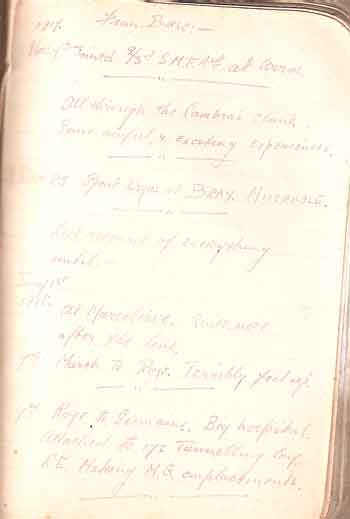 1917. From Base:—
Nov 1st Joined 2/3rd S.M.F.A. at
All through the Cambrai stunt.
Some awful, & exciting experiences.
25 Spent Xmas at BRAY. MISERABLE.
Lost account of everything
until:—
Jany 1st
1918 At Marcelcave.
after the
March to Roye. Terribly fed up.
Roye to Germaine. Big hospital.
Attached to 172 Tunnelling Coy.
R.E. Making M.G. emplacements.